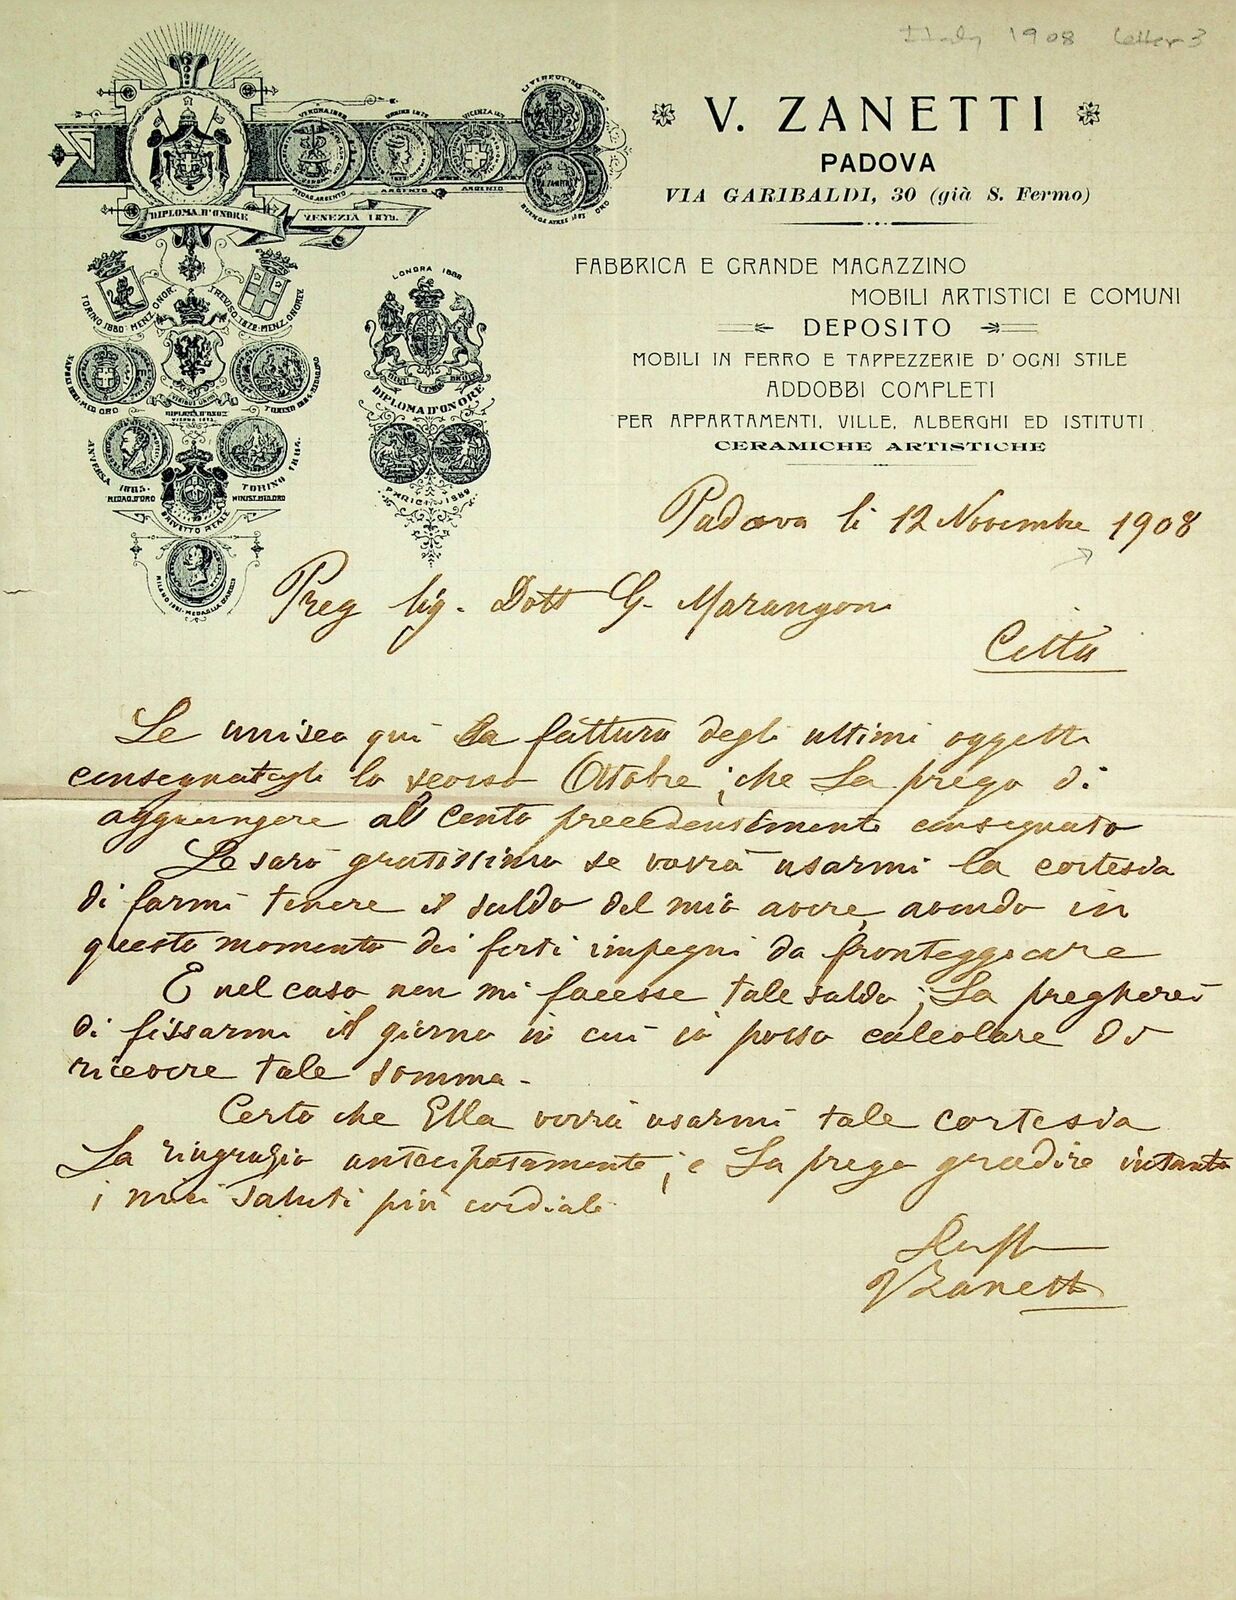 Italy 1908 Letter 3
V. ZANETTI
PADOVA
VIA GARIBALDI, 30 (già S. Fermo)
FABBRICA E GRANDE MAGAZZINO
MOBILI ARTISTICI E COMUNI
DEPOSITO
MOBILI IN FERRO E TAPPEZZERIE D'OGNI STILE
ADDOBBI COMPLETI
PER APPARTAMENTI, VILLE, ALBERGHI ED ISTITUTI
CERAMICHE ARTISTICHE
LIVERPOOL ORO
VERONA MEDAG. ARGENTO
UDINE ARGENTO
VICENZA ARGENTO
BUENOS AYRES ORO
DIPLOMA D'ONORE
VENEZIA 1879.
TORINO 1880: MENZ. ONOR.
TREVISO MENZ. ONOREV.
NAPOLI MED. ORO
DIPLOMA D'ONOR
TORINO
ANVERSA 1885. MEDAG. D'ORO
TORINO MINIST. ORO
BREVETTO REALE
MILANO 1881. MEDAGLIA
LONDRA 1888
DIPLOMA D'ONORE
PARIGI 1889
Padova li 12 Novembre 1908
Preg Sig. Dott G. Marangoni
Città
Le unisco qui la fattura degli ultimi oggetti
consegnategli lo scorso Ottobre; che La prego di
aggiungere al Conto precedentemente consegnato
Le sarò gratissimo se vorrà usarmi la cortesia
di farmi tenere il saldo del mio avere, avendo in
questo momento dei forti impegni da fronteggiare
E nel caso non mi facesse tale saldo; La pregherei
di fissarmi il giorno in cui io posso calcolare di
ricevere tale somma.
Certo che Ella vorrà usarmi tale cortesia
La ringrazio anticipatamente; e La prego gradire intanto
i miei saluti più cordiali
VZanetti